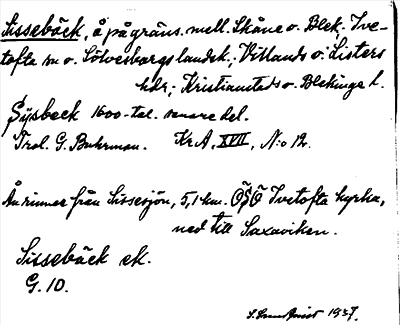 Sissebäck, å på gräns. mell. Skåne o. Blek. Ive-
tofta sn o. Sölvesborgs landsk.; Villands o. Listers
hdr; Kristianstads o. Blekinge l.
Sysbeck 1600-tal. senare del.
Trol. G. Buhrman. Kr A, XVII, N:o 12.
Ån rinner från Sissesjön, 5,1 km. ÖSÖ Ivetofta kyrka,
ned till Saxaviken.
Sissebäck ek.
G. 10.
1937.